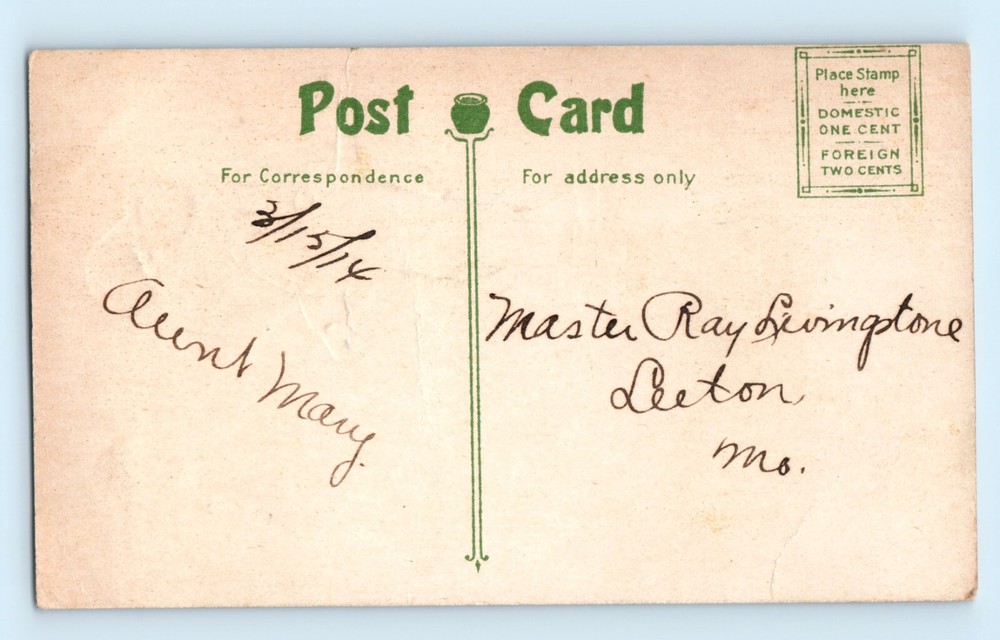 Post Card
Place Stamp
here
DOMESTIC
ONE CENT
FOREIGN
TWO CENTS
For Correspondence
For address only
3/15/14
Aunt Mary.
Master Ray Livingstone
Leeton,
Mo.